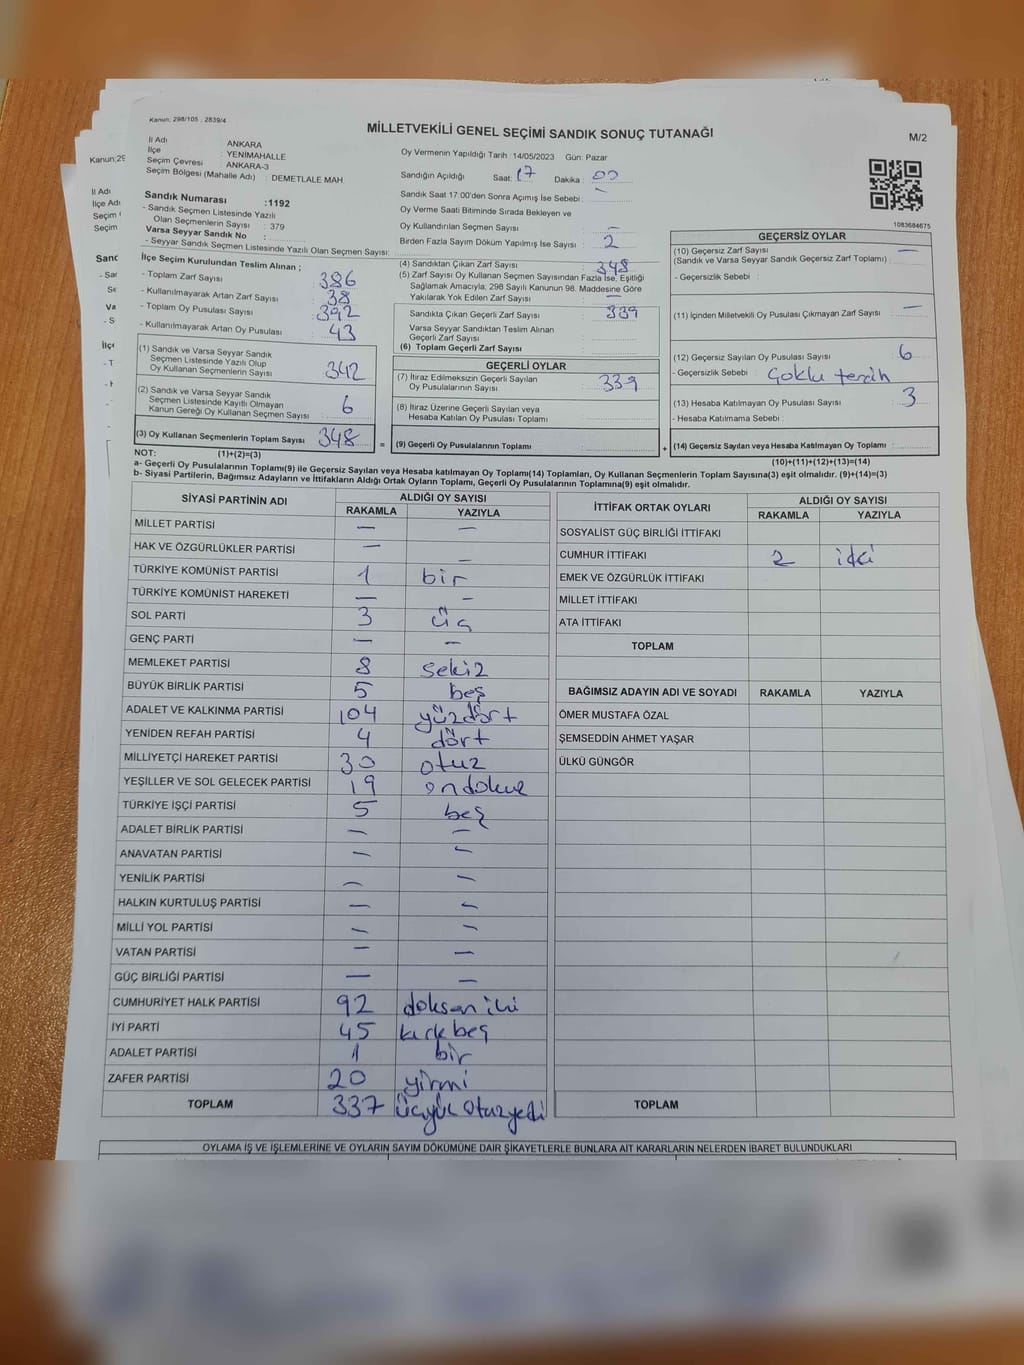 Kanun: 298/105 , 2839/4
MİLLETVEKİLİ GENEL SEÇİMİ SANDIK SONUÇ TUTANAĞI
M/2
İl Adı : ANKARA
İlçe : YENİMAHALLE
Seçim Çevresi : ANKARA-3
Seçim Bölgesi (Mahalle Adı) : DEMETLALE MAH.
Sandık Numarası :1192
- Sandık Seçmen Listesinde Yazılı
Olan Seçmenlerin Sayısı : 379
Varsa Seyyar Sandık No :
- Seyyar Sandık Seçmen Listesinde Yazılı Olan Seçmen Sayısı:
Oy Vermenin Yapıldığı Tarih :14/05/2023 Gün: Pazar
Sandığın Açıldığı Saat: 17 Dakika : 00
Sandık Saat 17:00'den Sonra Açımış İse Sebebi : -
Oy Verme Saati Bitiminde Sırada Bekleyen ve
Oy Kullandırılan Seçmen Sayısı : -
Birden Fazla Sayım Döküm Yapılmış İse Sayısı : 2
1083684675
İlçe Seçim Kurulundan Teslim Alınan ;
- Toplam Zarf Sayısı : 386
- Kullanılmayarak Artan Zarf Sayısı : 38
- Toplam Oy Pusulası Sayısı : 392
- Kullanılmayarak Artan Oy Pusulası : 43
(1) Sandık ve Varsa Seyyar Sandık
Seçmen Listesinde Yazılı Olup
Oy Kullanan Seçmenlerin Sayısı : 342
(2) Sandık ve Varsa Seyyar Sandık
Seçmen Listesinde Kayıtlı Olmayan
Kanun Gereği Oy Kullanan Seçmen Sayısı : 6
(3) Oy Kullanan Seçmenlerin Toplam Sayısı 348
(4) Sandıktan Çıkan Zarf Sayısı : 348
(5) Zarf Sayısı Oy Kullanan Seçmen Sayısından Fazla İse, Eşitliği
Sağlamak Amacıyla; 298 Sayılı Kanunun 98. Maddesine Göre
Yakılarak Yok Edilen Zarf Sayısı : -
Sandıkta Çıkan Geçerli Zarf Sayısı : 339
Varsa Seyyar Sandıktan Teslim Alınan
Geçerli Zarf Sayısı :
(6) Toplam Geçerli Zarf Sayısı
GEÇERLİ OYLAR
(7) İtiraz Edilmeksizin Geçerli Sayılan
Oy Pusulalarının Sayısı : 339
(8) İtiraz Üzerine Geçerli Sayılan veya
Hesaba Katılan Oy Pusulası Toplamı :
= (9) Geçerli Oy Pusulalarının Toplamı :
GEÇERSİZ OYLAR
(10) Geçersiz Zarf Sayısı -
(Sandık ve Varsa Seyyar Sandık Geçersiz Zarf Toplamı) :
- Geçersizlik Sebebi :
(11) İçinden Milletvekili Oy Pusulası Çıkmayan Zarf Sayısı : -
(12) Geçersiz Sayılan Oy Pusulası Sayısı : 6
- Geçersizlik Sebebi : Çoklu tercih
(13) Hesaba Katılmayan Oy Pusulası Sayısı : 3
- Hesaba Katılmama Sebebi :
+ (14) Geçersiz Sayılan veya Hesaba Katılmayan Oy Toplamı :
NOT: (1)+(2)=(3)
(10)+(11)+(12)+(13)=(14)
a- Geçerli Oy Pusulalarının Toplamı(9) ile Geçersiz Sayılan veya Hesaba katılmayan Oy Toplamı(14) Toplamları, Oy Kullanan Seçmenlerin Toplam Sayısına(3) eşit olmalıdır. (9)+(14)=(3)
b- Siyasi Partilerin, Bağımsız Adayların ve İttifakların Aldığı Ortak Oyların Toplamı, Geçerli Oy Pusulalarının Toplamına(9) eşit olmalıdır.
SİYASİ PARTİNİN ADI ALDIĞI OY SAYISI
RAKAMLA YAZIYLA
MİLLET PARTİSİ - -
HAK VE ÖZGÜRLÜKLER PARTİSİ - -
TÜRKİYE KOMÜNİST PARTİSİ 1 bir
TÜRKİYE KOMÜNİST HAREKETİ - -
SOL PARTİ 3 üç
GENÇ PARTİ - -
MEMLEKET PARTİSİ 8 sekiz
BÜYÜK BİRLİK PARTİSİ 5 beş
ADALET VE KALKINMA PARTİSİ 104 yüzdört
YENİDEN REFAH PARTİSİ 4 dört
MİLLİYETÇİ HAREKET PARTİSİ 30 otuz
YEŞİLLER VE SOL GELECEK PARTİSİ 19 ondokuz
TÜRKİYE İŞÇİ PARTİSİ 5 beş
ADALET BİRLİK PARTİSİ - -
ANAVATAN PARTİSİ - -
YENİLİK PARTİSİ - -
HALKIN KURTULUŞ PARTİSİ - -
MİLLİ YOL PARTİSİ - -
VATAN PARTİSİ - -
GÜÇ BİRLİĞİ PARTİSİ - -
CUMHURİYET HALK PARTİSİ 92 doksan iki
İYİ PARTİ 45 kırkbeş
ADALET PARTİSİ 1 bir
ZAFER PARTİSİ 20 yirmi
TOPLAM 337 üçyüz otuzyedi
İTTİFAK ORTAK OYLARI ALDIĞI OY SAYISI
RAKAMLA YAZIYLA
SOSYALİST GÜÇ BİRLİĞİ İTTİFAKI
CUMHUR İTTİFAKI 2 iki
EMEK VE ÖZGÜRLÜK İTTİFAKI
MİLLET İTTİFAKI
ATA İTTİFAKI
TOPLAM
BAĞIMSIZ ADAYIN ADI VE SOYADI RAKAMLA YAZIYLA
ÖMER MUSTAFA ÖZAL
ŞEMSEDDİN AHMET YAŞAR
ÜLKÜ GÜNGÖR
TOPLAM
OYLAMA İŞ VE İŞLEMLERİNE VE OYLARIN SAYIM DÖKÜMÜNE DAİR ŞİKAYETLERLE BUNLARA AİT KARARLARIN NELERDEN İBARET BULUNDUKLARI